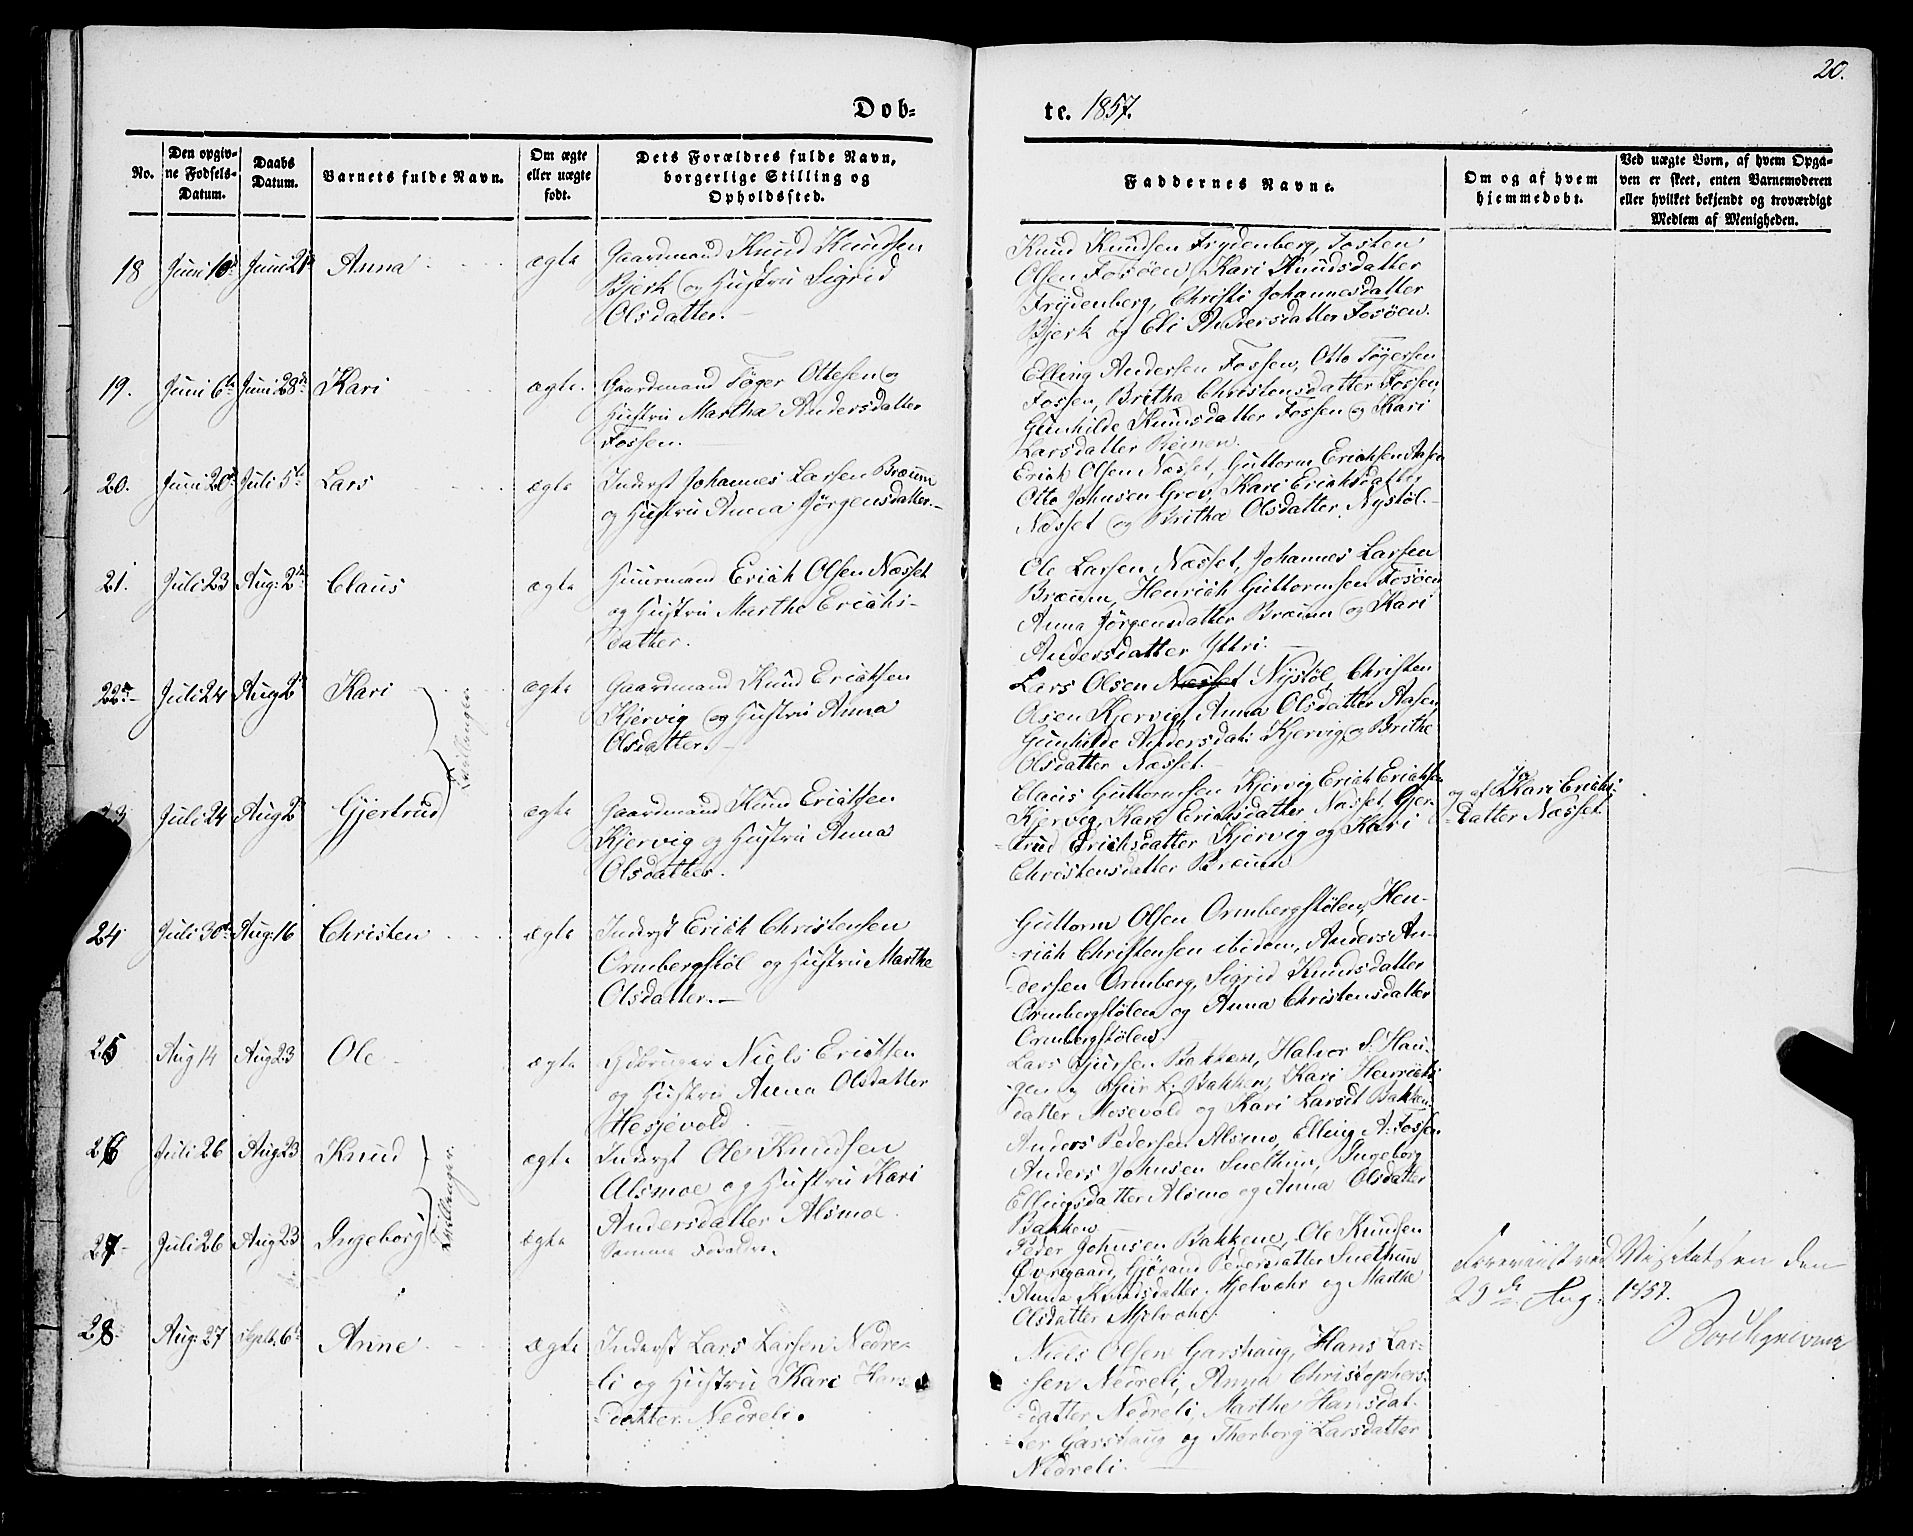 20.
Døb-
te. 1857.
No.
Den opgiv-
ne Fødsels-
Datum.
Daabs
Datum.
Barnets fulde Navn.
Om ægte
eller uægte
født.
Dets Forældres fulde Navn,
borgerlige Stilling og
Opholdssted.
Faddernes Navne.
Om og af hvem
hjemmedøbt.
Ved uægte Børn, af hvem Opga-
ven er skeet, enten Barnemoderen
eller hvilket bekjendt og troværdigt
Medlem af Menigheden.
18 Juni 10d Juni 21 Anna ægte
Gaardmand Knud Knudsen
Bjerk og Hustru Sigrid
Olsdatter.
Knud Knudsen Frydenberg, Tosten
Olsen Fosøen, Kari Knudsdatter
Frydenberg, Christi Johannesdatter
Bjerk og Eli Andersdatter Fosøen.
19. Juni 6te Juni 28d Kari ægte.
Gaardmand Tøger Ottesen og
Hustru Martha Andersdatter
Fossen.
Elling Andersen Fossen, Otto Tøgersen
Fossen, Britha Christensdatter Fossen,
Gunhilde Knudsdatter Fossen og Kari
Larsdatter Reinen.
20. Juni 20d Juli 5te Lars ægte
Inderst Johannes Larsen Bræum
og Hustru Anna Jørgensdatter.
Erich Olsen Næsset, Guttorm Erichsen Aasen
Otto Johnsen Grov, Kari Erichsdatter
Næsset og Britha Olsdatter Nystøl.
21. Juli 23 Aug: 2den Claus ægte
Huusmand Erich Olsen Næsset
og Hustru Marthe Erichs-
datter.
Ole Larsen Næsset, Johannes Larsen
Bræum, Henrich Guttormsen Fosøen
Anna Jørgensdatter Bræum og Kari
Andersdatter Yttri.
22 Juli 24 Aug 2d Kari Tvillinger ægte
Gaardmand Knud Erichsen
Kjervig og Hustru Anna
Olsdatter.
Lars Olsen Næsset Nystøl, Christen
Olsen Kjervig, Anna Olsdatter Aasen,
Gunhilde Andersdat: Kjervig og Brithe
Olsdatter Næsset.
23 Juli 24 Aug 2d Gjertrud ægte
Gaardmand Knud Erichsen
Kjervig og Hustru Anna
Olsdatter.
Claus Guttormsen Kjervig, Erich Erichsen
Kjervig, Kari Erichsdatter Næsset, Gjer-
trud Erichsdatter Kjervig og Kari
Christensdatter Bræum
Ja
og af Kari Erichs-
datter Næsset
24 Juli 30d Aug: 16 Christen ægte
Inderst Erich Christensen
Ormbergstøl og Hustru Marthe
Olsdatter.
Guttorm Olsen Ormbergstølen, Hen-
rich Christensen ibidem, Anders An-
dersen Ormberg, Sigrid Knudsdatter
Ormbergstølen og Anna Christensdatter
Ormbergstølen.
25 Aug 14 Aug 23 Ole ægte
Niels Erichsen
og Hustru Anna Olsdatter
Hesjevold
Lars Sjursen Bakken, Halvor S. Hau-
gen og Sjur L: Bakken, Kari Henrichs-
datter Mosevold og Kari Larsdt Bakken.
26 Juli 26 Aug 23 Knud Tvillinger ægte
Inderst Ole Knudsen
Alsmoe og Hustru Kari
Andersdatter Alsmoe.
Anders Pedersen Alsmo, Elling A: Fossen
Anders Johnsen Snethun, Ingeborg
Ellingsdatter Alsmo og Anna Olsdatter
Bakken
27 Juli 26 Aug 23 Ingeborg ægte
Samme Forældre.
Peder Johnsen Bakkene, Ole Knudsen
Øvregaard, Gjøran Pedersdatter Snethun
Anna Knudsdatter Mjelvohr og Marthe
Olsdatter Mjelvohr.
Foreviist ved Visitatsen den
29de Aug: 1857.
28 Aug: 27 Septb. 6te Anne ægte
Inderst Lars Larsen Nedre-
li og Hustru Kari Hans-
datter Nedreli.
Niels Olsen Garshaug, Hans Lar-
sen Nedreli, Anna Christophers-
datter Nedreli, Marthe Hansdat-
ter Garshaug og Thorborg Larsdatter
Nedreli.